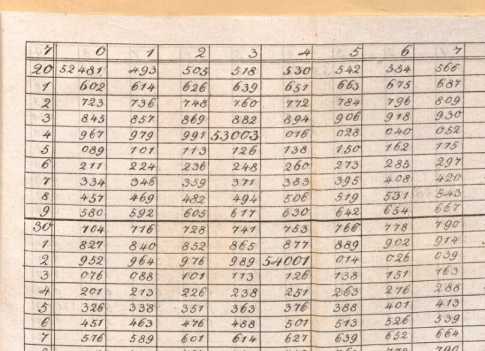 7 0 1 2 3 4 5 6 7
20 52481 493 505 518 530 542 554 566
1 602 614 626 639 651 663 675 687
2 723 736 748 760 772 784 796 809
3 845 857 869 882 894 906 918 930
4 967 979 991 53003 016 028 040 052
5 089 101 113 126 138 150 162 175
6 211 224 236 248 260 273 285 297
7 334 346 359 371 383 395 408 420
8 457 469 482 494 506 519 531 543
9 580 592 605 617 630 642 654 667
30 704 716 728 741 753 766 778 790
1 827 840 852 865 877 889 902 914
2 952 964 976 989 54001 014 026 039
3 076 088 101 113 126 138 151 163
4 201 213 226 238 251 263 276 288
5 326 338 351 363 376 388 401 413
6 451 463 476 488 501 513 526 539
7 576 589 601 614 627 639 652 664
790